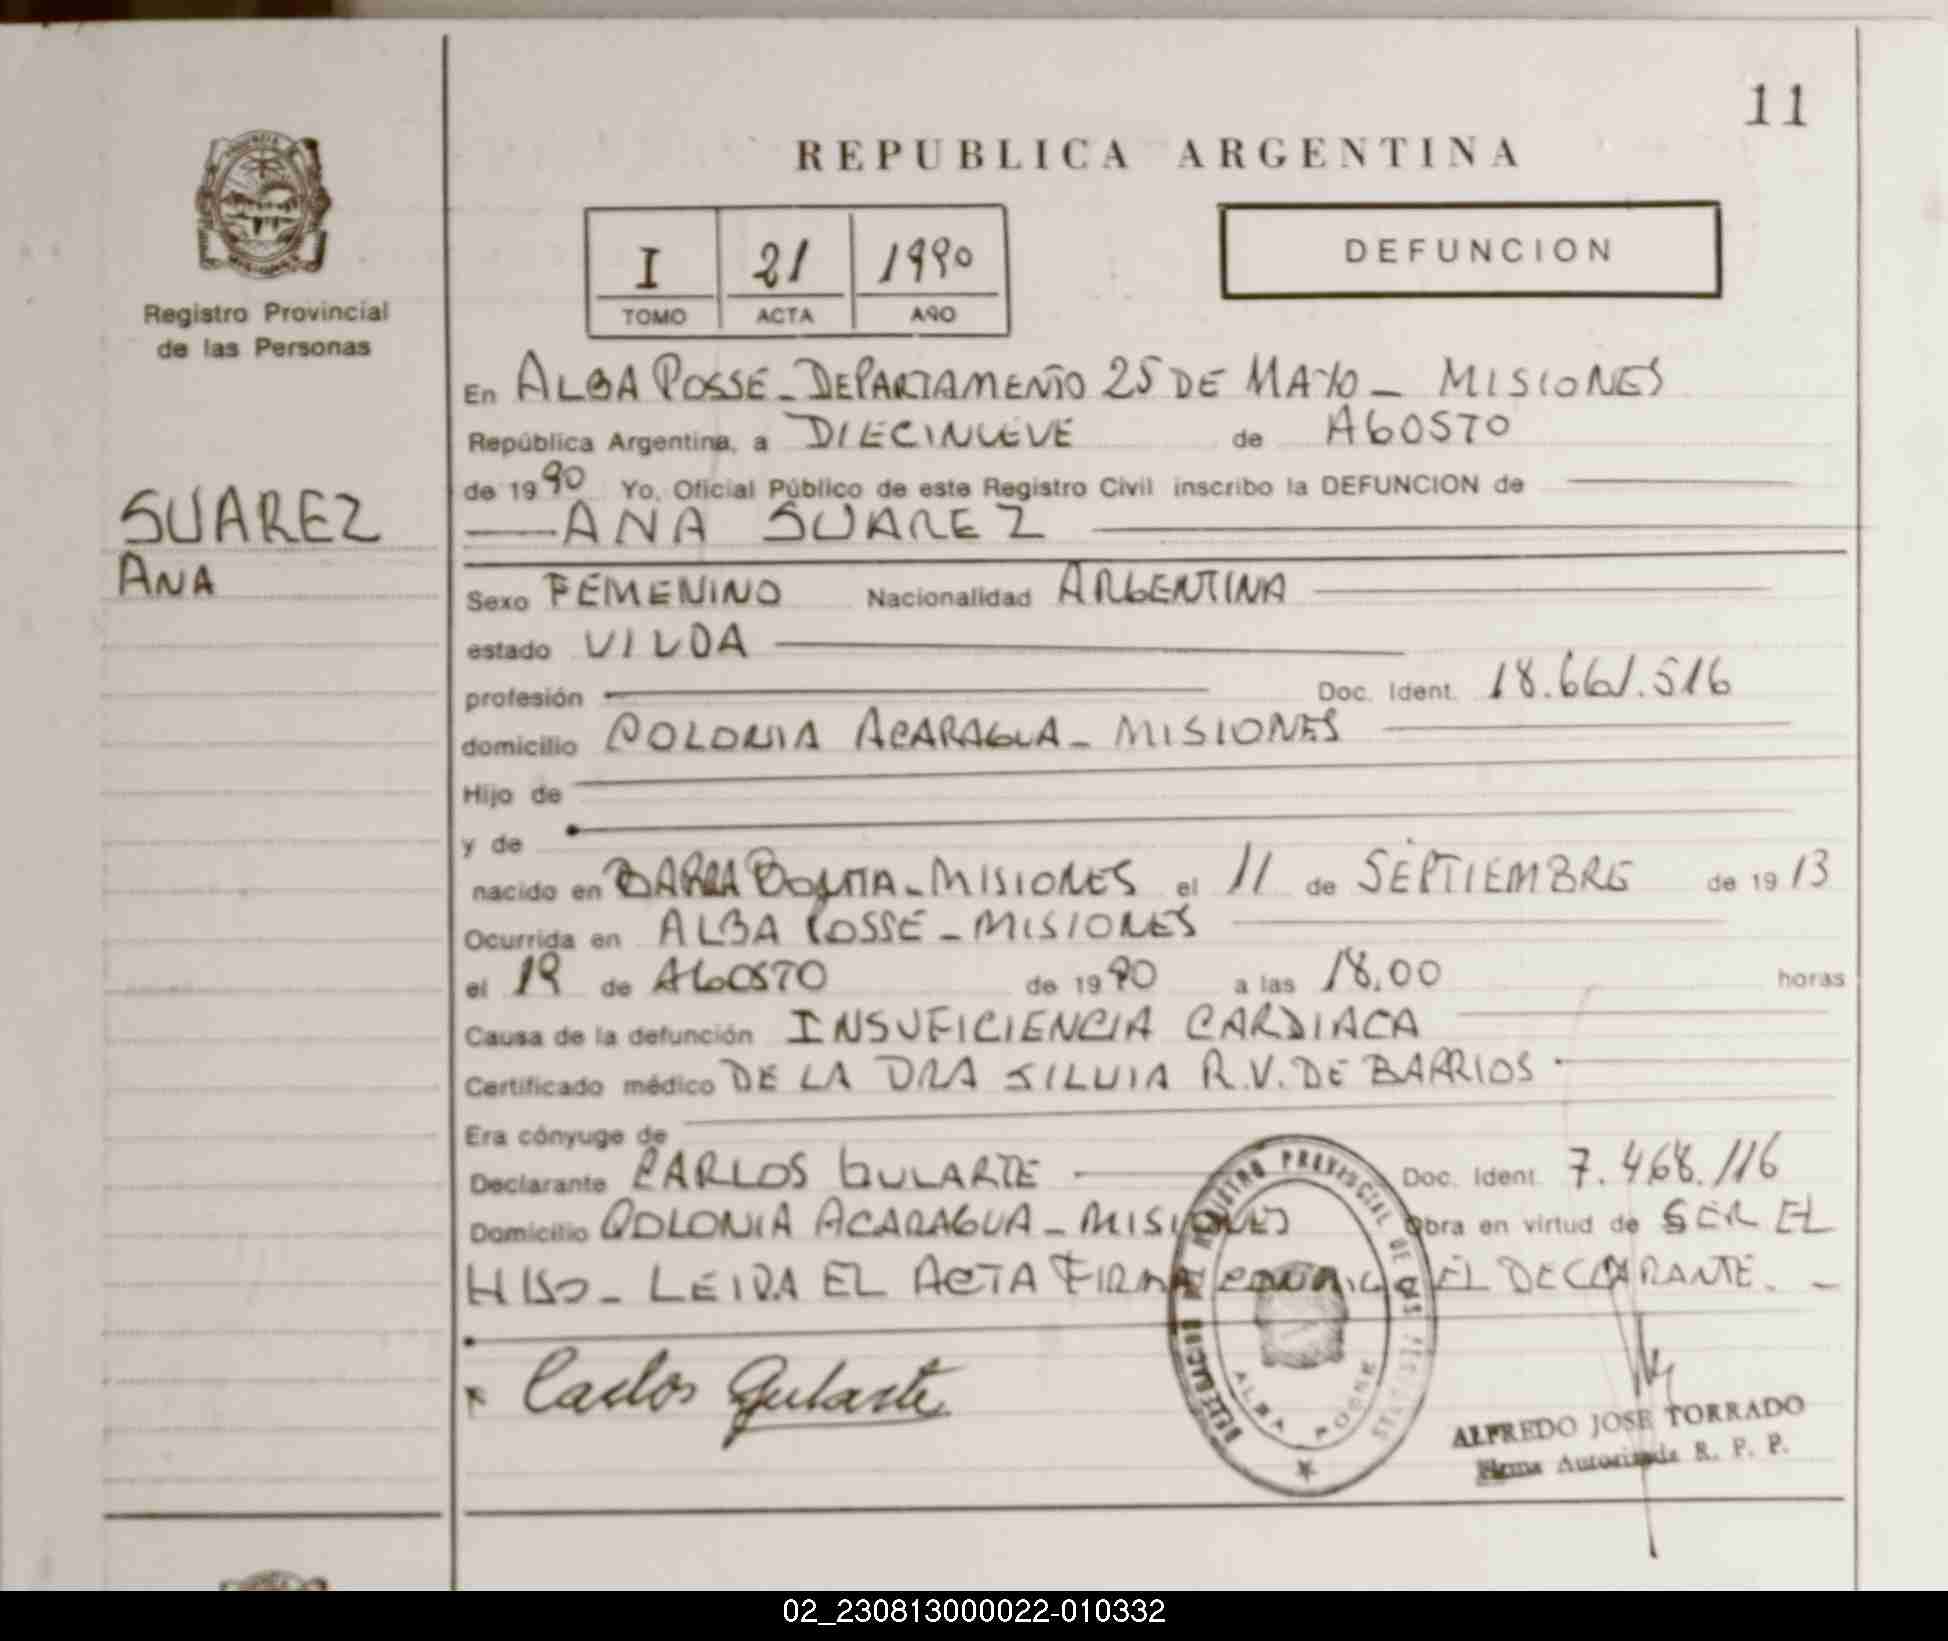 11
REPUBLICA ARGENTINA
I 21 1990
TOMO ACTA AÑO
DEFUNCION
Registro Provincial
de las Personas
SUAREZ
ANA
En ALBA POSSE - DEPARTAMENTO 25 DE MAYO - MISIONES
República Argentina, a DIECINUEVE de AGOSTO
de 1990 Yo, Oficial Público de este Registro Civil inscribo la DEFUNCION de
ANA SUAREZ
Sexo FEMENINO Nacionalidad ARGENTINA
estado VIUDA
profesión Doc. Ident. 18.661.516
domicilio COLONIA ACARAGUA - MISIONES
Hijo de
y de
nacido en BARRA BONITA - MISIONES el 11 de SEPTIEMBRE de 1913
Ocurrida en ALBA POSSE - MISIONES
el 19 de AGOSTO de 1990 a las 18.00 horas
Causa de la defunción INSUFICIENCIA CARDIACA
Certificado médico DE LA DRA SILVIA R.V. DE BARRIOS
Era cónyuge de
Declarante CARLOS GULARTE Doc. Ident. 7.468.116
Domicilio COLONIA ACARAGUA - MISIONES Obra en virtud de SER EL
HIJO - LEIDA EL ACTA FIRMA CONMIGO EL DECLARANTE. -
Carlos Gularte
DELEGACION DEL REGISTRO PROVINCIAL DE LAS PERSONAS
ALBA POSSE
ALFREDO JOSE TORRADO
Firma Autorizada R. P. P.
02_230813000022-010332